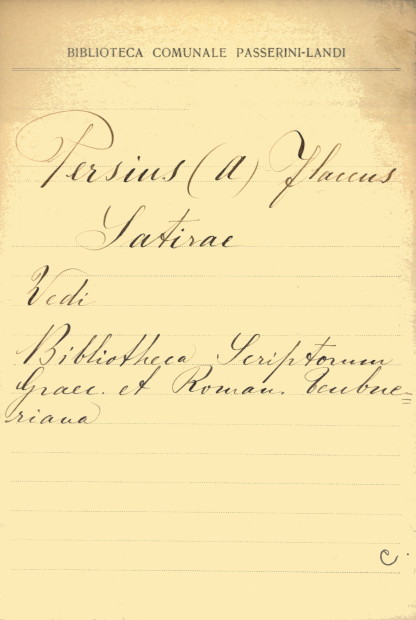 BIBLIOTECA COMUNALE PASSERINI-LANDI
Persius (A) Flaccus
Satirae
Vedi
Bibliotheca Scriptorum
Graec. et Roman. Teubne=
riana
C.